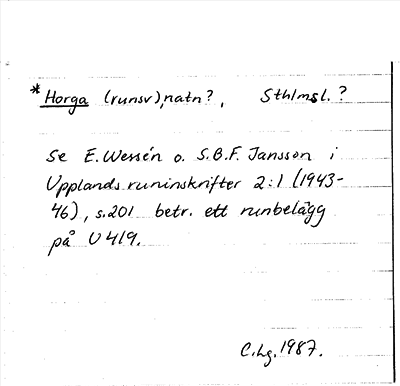 *Horga (runsv), natn?, Sthlmsl.?
Se E. Wessén o. S.B.F. Jansson i
Upplands runinskrifter 2:1 (1943-
46), s. 201 betr. ett runbelägg
på U 419.
C. Lg. 1987.